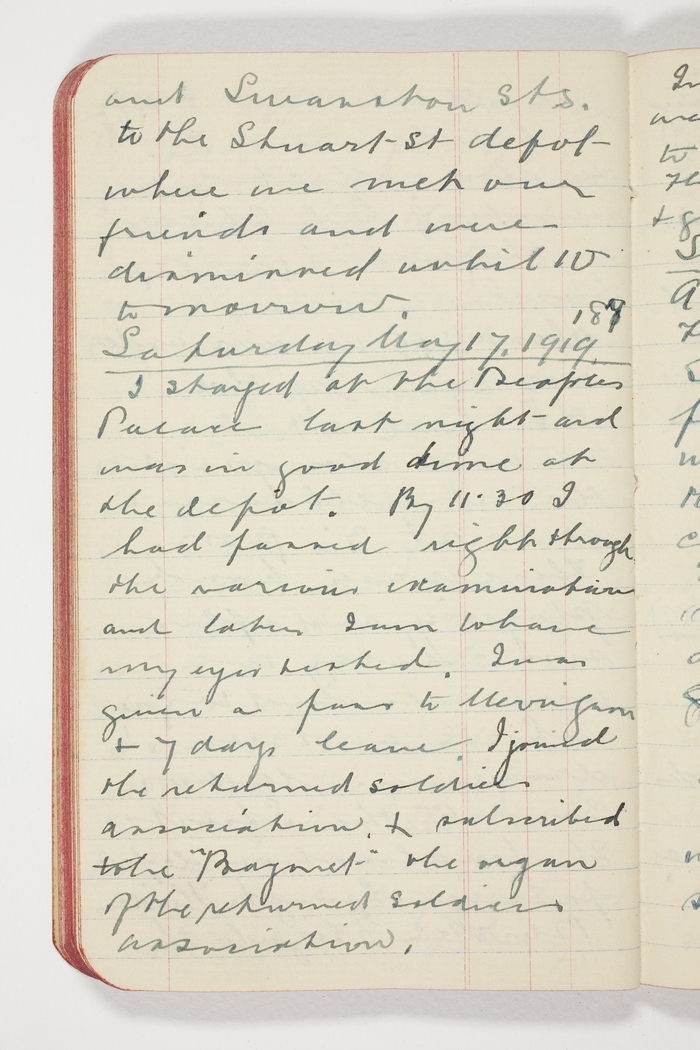 and Swanston Sts.
to the Stuart St depot
where we met our
friends and were
dismissed until 10
tomorrow.
187
Saturday May 17. 1919.
I stayed at the Peoples
Palace last night and
was in good time at
the depot. By 11.30 I
had passed right through
the various examination
and later I am to have
my eyes tested. I was
given a pass to
+ 7 days leave. I joined
the returned soldiers
association. & subscribed
to the "Bayonet" the organ
of the returned soldiers
association.